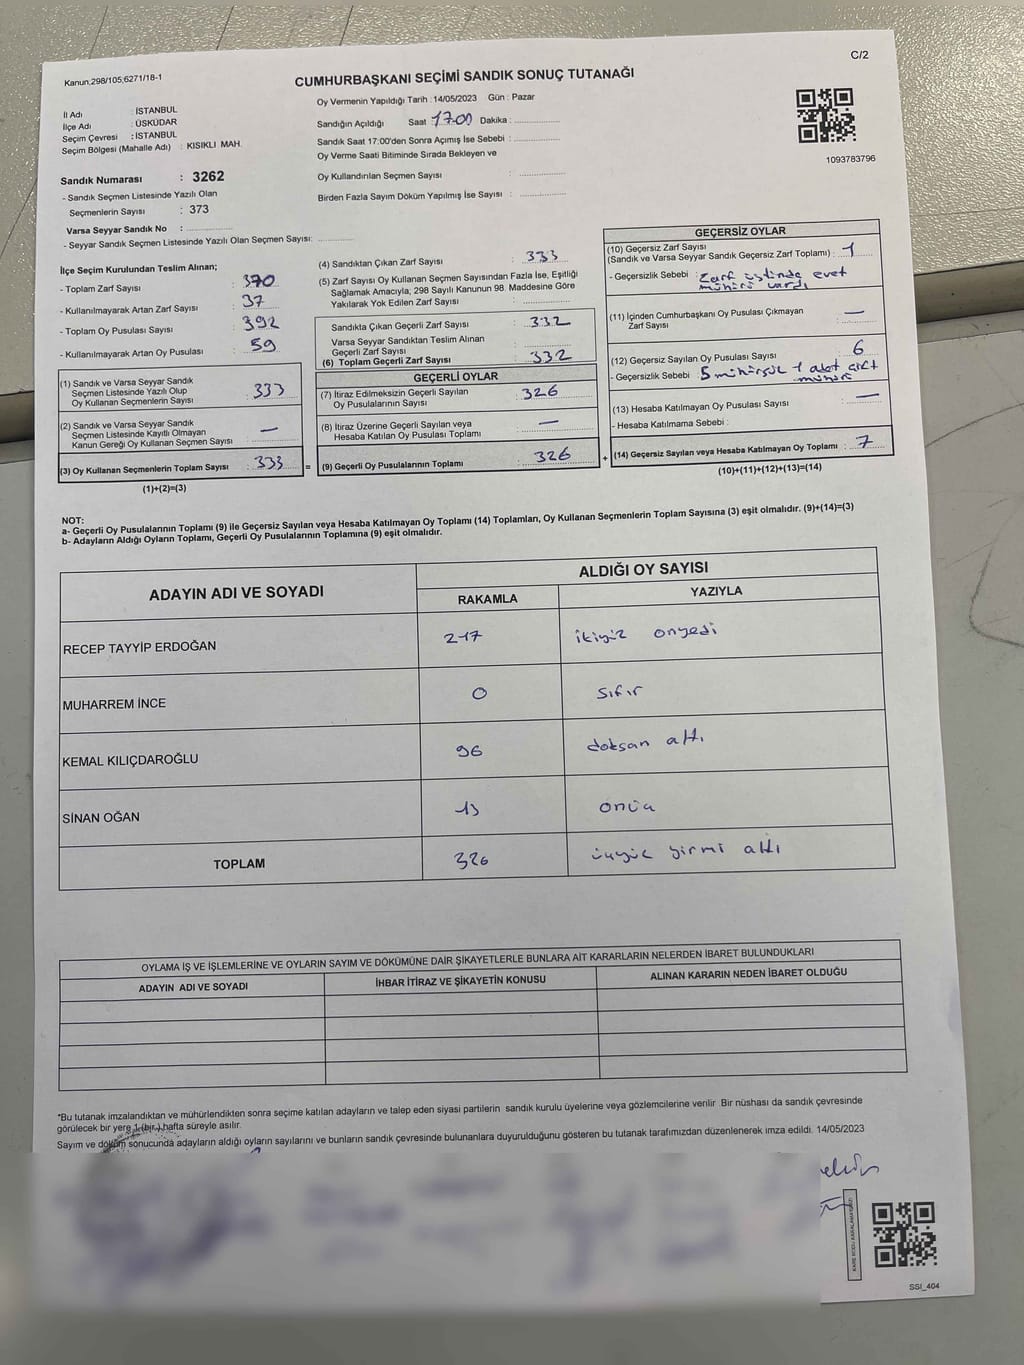 Kanun;298/105;6271/18-1
C/2
CUMHURBAŞKANI SEÇİMİ SANDIK SONUÇ TUTANAĞI
İl Adı : İSTANBUL
İlçe Adı : ÜSKÜDAR
Seçim Çevresi : İSTANBUL
Seçim Bölgesi (Mahalle Adı) : KISIKLI MAH.
Sandık Numarası : 3262
- Sandık Seçmen Listesinde Yazılı Olan
Seçmenlerin Sayısı : 373
Varsa Seyyar Sandık No :
- Seyyar Sandık Seçmen Listesinde Yazılı Olan Seçmen Sayısı:
Oy Vermenin Yapıldığı Tarih :14/05/2023 Gün : Pazar
Sandığın Açıldığı Saat 17:00 Dakika :
Sandık Saat 17:00'den Sonra Açımış İse Sebebi :
Oy Verme Saati Bitiminde Sırada Bekleyen ve
Oy Kullandırılan Seçmen Sayısı :
Birden Fazla Sayım Döküm Yapılmış İse Sayısı :
1093783796
İlçe Seçim Kurulundan Teslim Alınan;
- Toplam Zarf Sayısı : 370
- Kullanılmayarak Artan Zarf Sayısı : 37
- Toplam Oy Pusulası Sayısı : 392
- Kullanılmayarak Artan Oy Pusulası : 59
(1) Sandık ve Varsa Seyyar Sandık
Seçmen Listesinde Yazılı Olup
Oy Kullanan Seçmenlerin Sayısı : 333
(2) Sandık ve Varsa Seyyar Sandık
Seçmen Listesinde Kayıtlı Olmayan
Kanun Gereği Oy Kullanan Seçmen Sayısı : —
(3) Oy Kullanan Seçmenlerin Toplam Sayısı : 333
(1)+(2)=(3)
(4) Sandıktan Çıkan Zarf Sayısı : 333
(5) Zarf Sayısı Oy Kullanan Seçmen Sayısından Fazla İse, Eşitliği
Sağlamak Amacıyla; 298 Sayılı Kanunun 98. Maddesine Göre
Yakılarak Yok Edilen Zarf Sayısı :
Sandıkta Çıkan Geçerli Zarf Sayısı : 332
Varsa Seyyar Sandıktan Teslim Alınan
Geçerli Zarf Sayısı :
(6) Toplam Geçerli Zarf Sayısı : 332
GEÇERLİ OYLAR
(7) İtiraz Edilmeksizin Geçerli Sayılan
Oy Pusulalarının Sayısı : 326
(8) İtiraz Üzerine Geçerli Sayılan veya
Hesaba Katılan Oy Pusulası Toplamı : —
= (9) Geçerli Oy Pusulalarının Toplamı : 326
GEÇERSİZ OYLAR
(10) Geçersiz Zarf Sayısı
(Sandık ve Varsa Seyyar Sandık Geçersiz Zarf Toplamı) : 1
- Geçersizlik Sebebi : Zarf üstünde evet
mühürü vardı
(11) İçinden Cumhurbaşkanı Oy Pusulası Çıkmayan
Zarf Sayısı : —
(12) Geçersiz Sayılan Oy Pusulası Sayısı : 6
- Geçersizlik Sebebi : 5 mühürsüz 1 adet çift
mühür
(13) Hesaba Katılmayan Oy Pusulası Sayısı : —
- Hesaba Katılmama Sebebi :
+ (14) Geçersiz Sayılan veya Hesaba Katılmayan Oy Toplamı : 7
(10)+(11)+(12)+(13)=(14)
NOT:
a- Geçerli Oy Pusulalarının Toplamı (9) ile Geçersiz Sayılan veya Hesaba Katılmayan Oy Toplamı (14) Toplamları, Oy Kullanan Seçmenlerin Toplam Sayısına (3) eşit olmalıdır. (9)+(14)=(3)
b- Adayların Aldığı Oyların Toplamı, Geçerli Oy Pusulalarının Toplamına (9) eşit olmalıdır.
ADAYIN ADI VE SOYADI ALDIĞI OY SAYISI
RAKAMLA YAZIYLA
RECEP TAYYİP ERDOĞAN 217 ikiyüz onyedi
MUHARREM İNCE 0 sıfır
KEMAL KILIÇDAROĞLU 96 doksan altı
SİNAN OĞAN 13 onüç
TOPLAM 326 üçyüz yirmi altı
OYLAMA İŞ VE İŞLEMLERİNE VE OYLARIN SAYIM VE DÖKÜMÜNE DAİR ŞİKAYETLERLE BUNLARA AİT KARARLARIN NELERDEN İBARET BULUNDUKLARI
ADAYIN ADI VE SOYADI İHBAR İTİRAZ VE ŞİKAYETİN KONUSU ALINAN KARARIN NEDEN İBARET OLDUĞU
*Bu tutanak imzalandıktan ve mühürlendikten sonra seçime katılan adayların ve talep eden siyasi partilerin sandık kurulu üyelerine veya gözlemcilerine verilir Bir nüshası da sandık çevresinde
görülecek bir yere 1 (bir) hafta süreyle asılır.
Sayım ve döküm sonucunda adayların aldığı oyların sayılarını ve bunların sandık çevresinde bulunanlara duyurulduğunu gösteren bu tutanak tarafımızdan düzenlenerek imza edildi. 14/05/2023
SSI_404